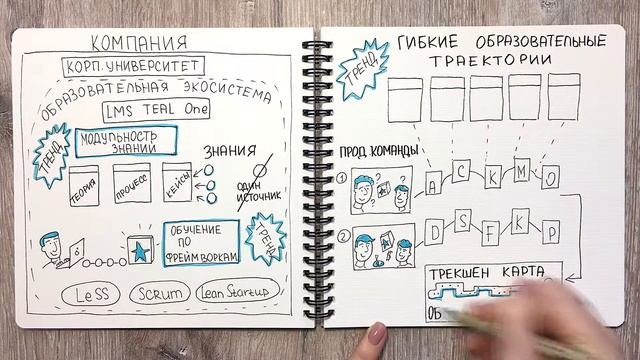 КОМПАНИЯ
КОРП. УНИВЕРСИТЕТ
ОБРАЗОВАТЕЛЬНАЯ ЭКОСИСТЕМА
LMS TEAL One
ТРЕНД
МОДУЛЬНОСТЬ
ЗНАНИЙ
ТЕОРИЯ
ПРОЦЕСС
КЕЙСЫ
ЗНАНИЯ
ОДИН
ИСТОЧНИК
ОБУЧЕНИЕ
ПО
ФРЕЙМВОРКАМ
ТРЕНД
LeSS
SCRUM
Lean Startup
ТРЕНД
ГИБКИЕ ОБРАЗОВАТЕЛЬНЫЕ
ТРАЕКТОРИИ
ПРОД. КОМАНДЫ
1 ? ? А С К М О
2 D S F K P
ТРЕКШЕН КАРТА
ОБ